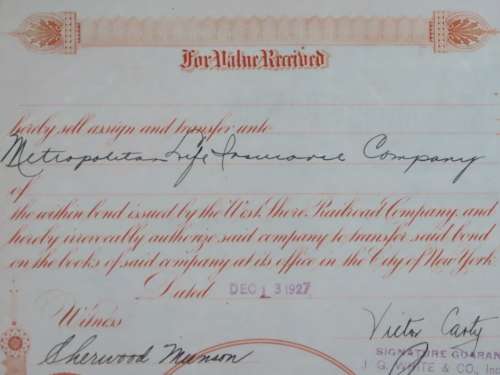 For Value Received
hereby sell assign and transfer unto
Metropolitan Life Insurance Company
of
the within bond issued by the West Shore Railroad Company, and
hereby irrevocably authorize said company to transfer said bond
on the books of said company at its office in the City of New York.
Dated DEC 13 1927
Witness
Victor Carty
Sherwood Munson
SIGNATURE GUARAN
J. G. WHITE & CO., Inc